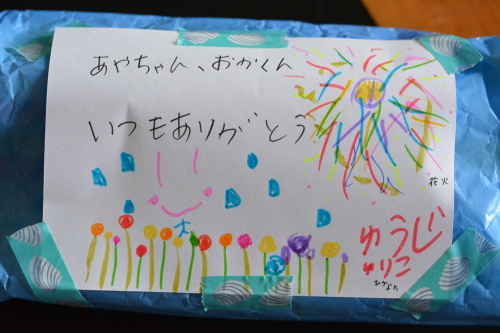 あやちゃん、おかくん
いつもありがとう
花火
ゆうじ
ゆりこ
ひなた